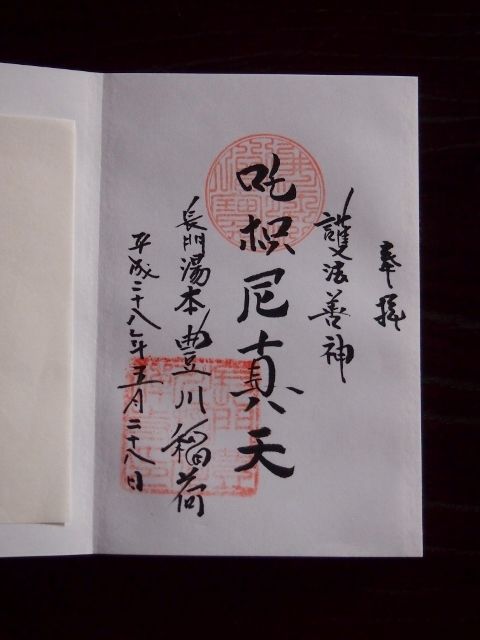 奉拝
護法善神
吒枳尼真天
長門湯本豊川稲荷
平成二十八年五月二十八日